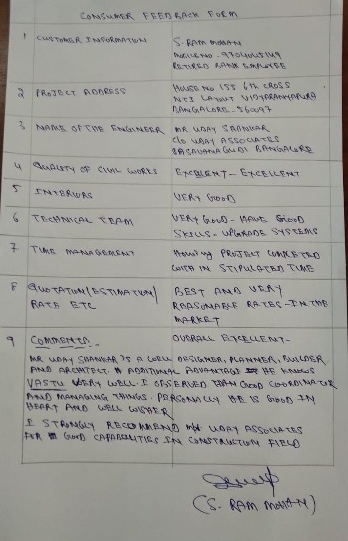 CONSUMER FEEDBACK FORM
1 CUSTOMER INFORMATION S. RAM MOHAN
RETIRED BANK EMPLOYEE
2 PROJECT ADDRESS HOUSE NO 155 6th CROSS
NTI LAYOUT VIDYARANYAPURA
BANGALORE - 560097
3 NAME OF THE ENGINEER MR UDAY SHANKAR
C/o UDAY ASSOCIATES
BASAVANAGUDI BANGALORE
4 QUALITY OF CIVIL WORKS EXCELLENT - EXCELLENT
5 INTERIORS VERY GOOD
6 TECHNICAL TEAM VERY GOOD - HAVE GOOD
SKILLS - UPGRADE SYSTEMS
7 TIME MANAGEMENT Housing PROJECT COMPLETED
WITH IN STIPULATED TIME
8 QUOTATION/ESTIMATION/ BEST AND VERY
RATE ETC REASONABLE RATES - IN THE
MARKET
9 COMMENTS - OVERALL EXCELLENT -
MR UDAY SHANKAR'S A WELL DESIGNER, PLANNER, BUILDER
AND ARCHITECT. ADDITIONAL ADVANTAGE HE KNOWS
VASTU VERY WELL. I OBSERVED GOOD COORDINATOR
AND MANAGING THINGS. PERSONALLY HE IS GOOD IN
HEART AND WELL WISHER
I STRONGLY RECOMMEND UDAY ASSOCIATES
FOR GOOD CAPABILITIES IN CONSTRUCTION FIELD
(S. RAM MOHAN)